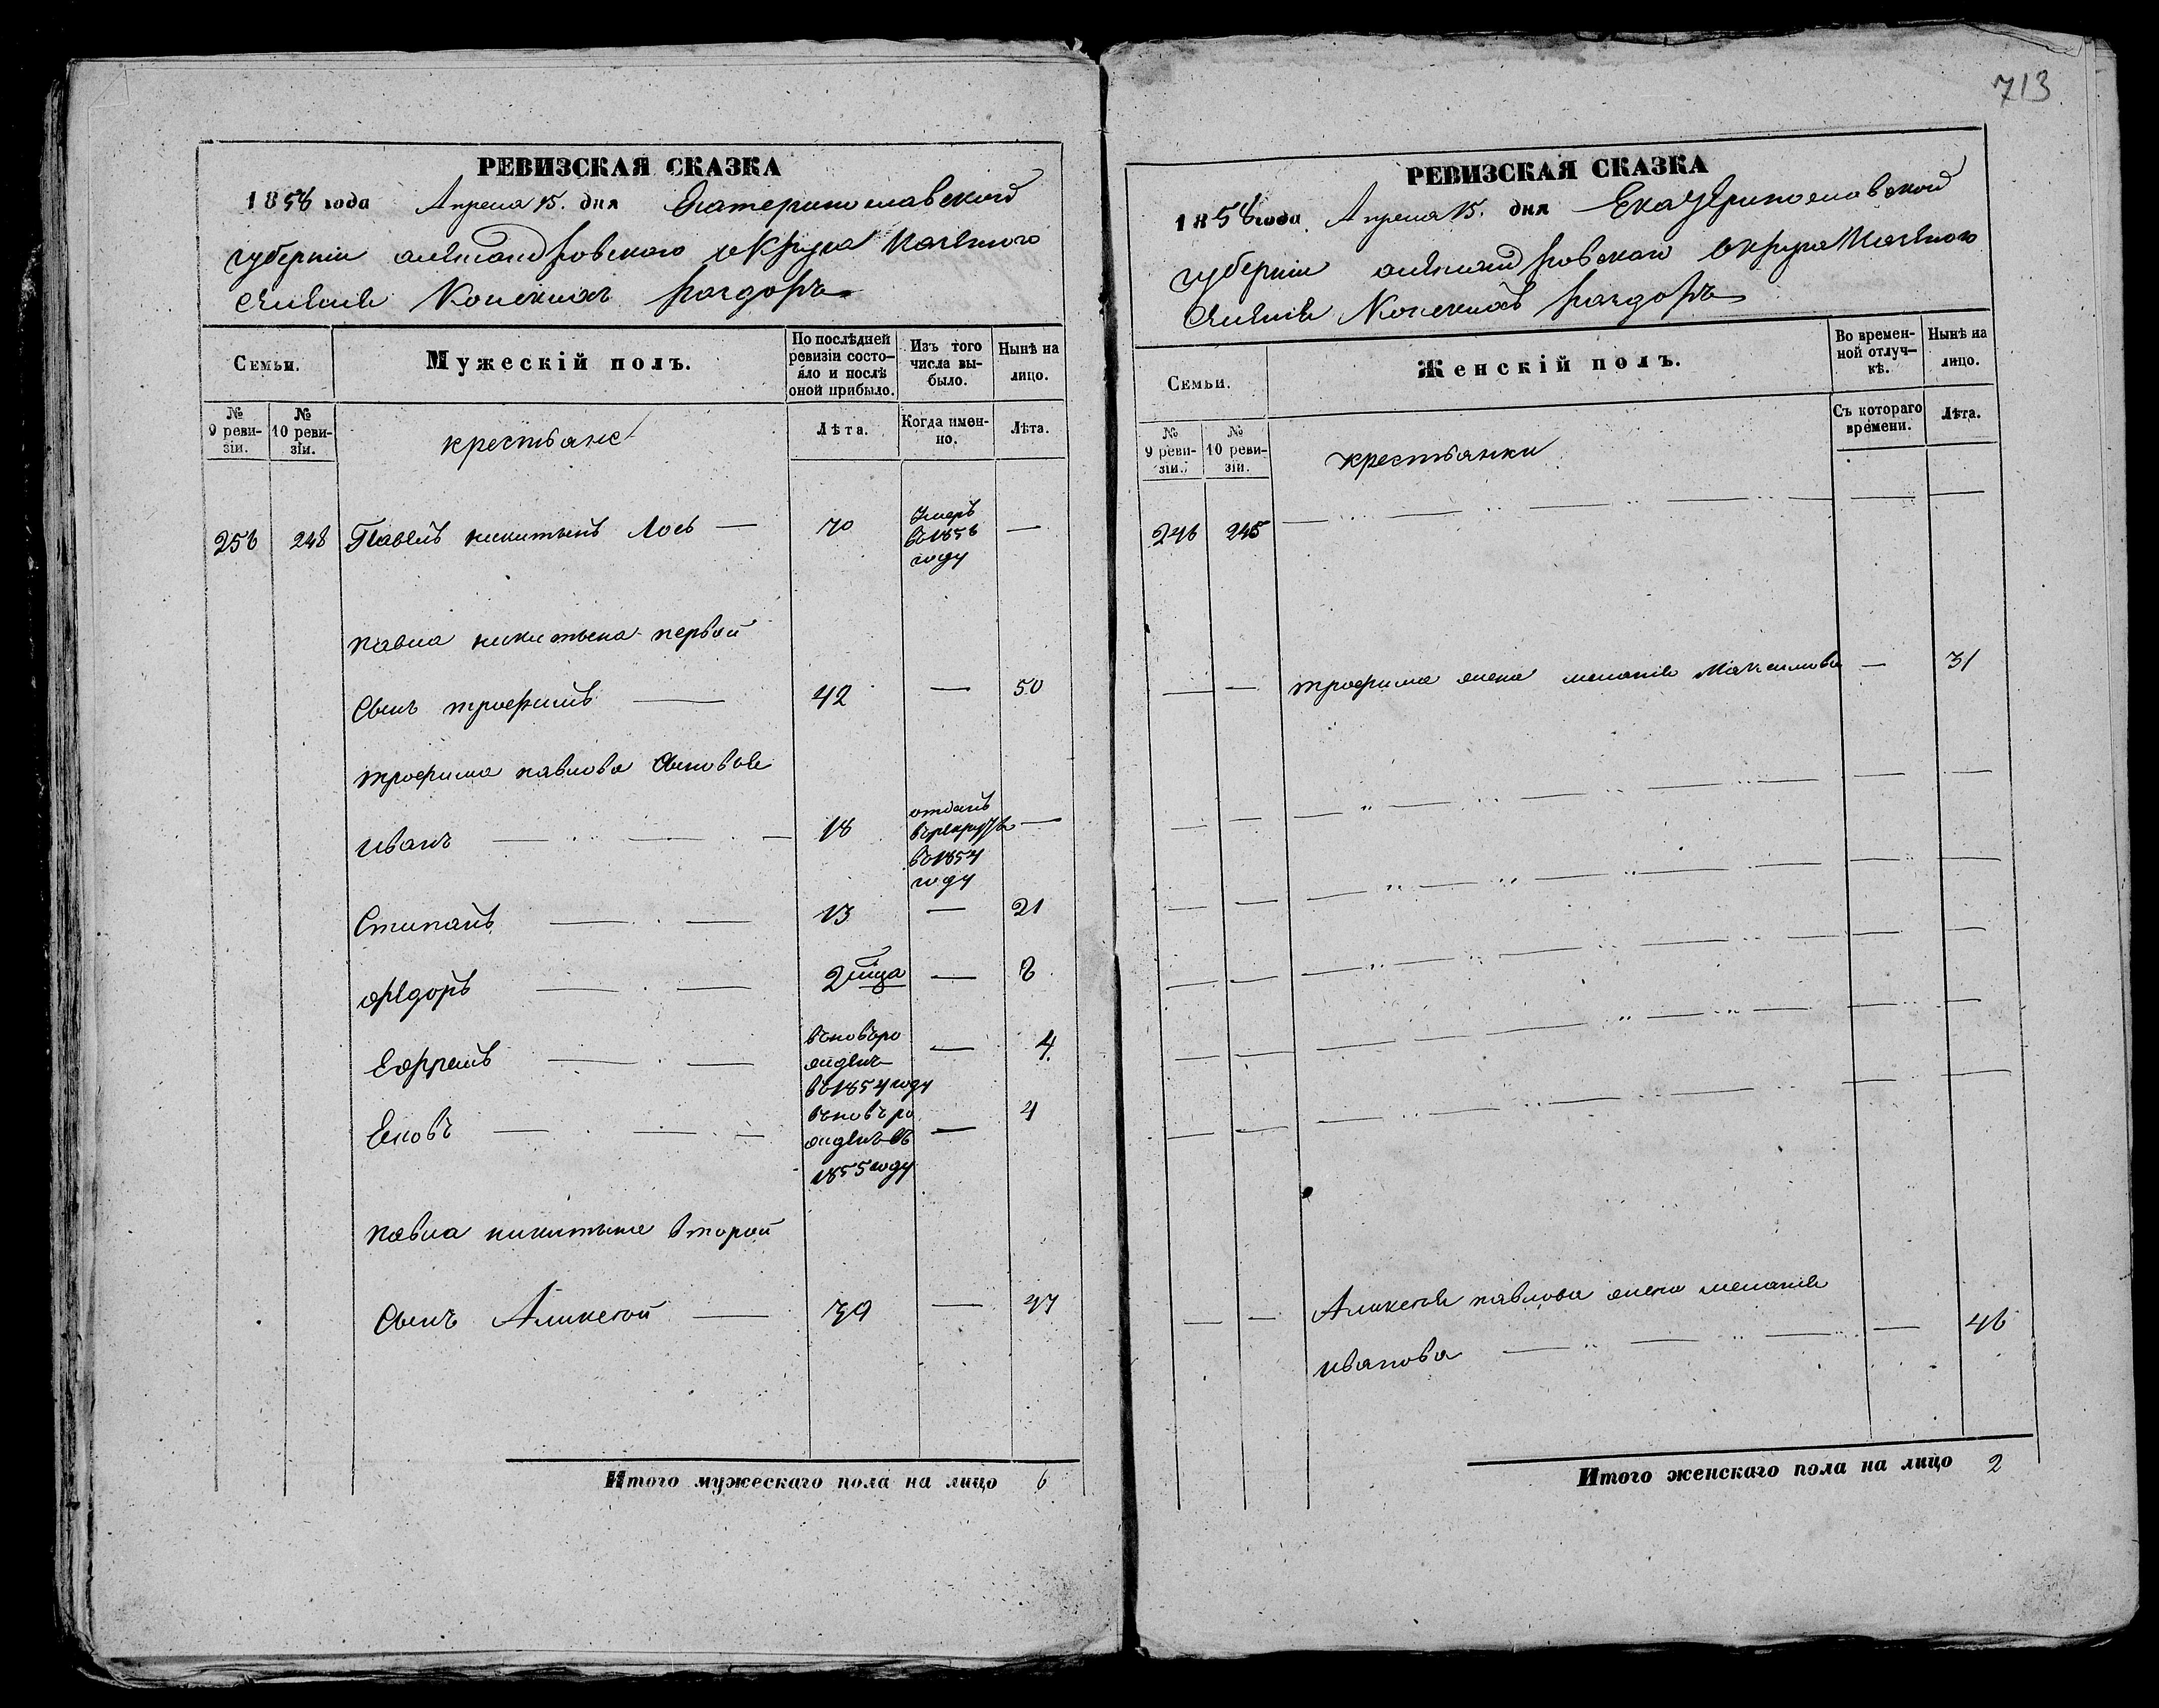 713
РЕВИЗСКАЯ СКАЗКА
1858 года Апреля 15. дня Екатеринославской
губернiи александровского округа Казенного
селения Конскихъ раздоръ
Семьи.
Мужескiй полъ.
По послѣдней ревизiи состояло и послѣ оной прибыло.
Изъ того числа выбыло.
Нынѣ на лицо.
№ 9 ревизiи.
№ 10 ревизiи.
крестьяне
Лѣта.
Когда именно.
Лѣта.
258 248 Павелъ никитынъ Лось — 70 Умеръ въ 1856 году —
павла никитына первой
Сынъ трофимъ — 42 — 50
трофима павлова сыновья
иванъ — 18 отданъ въ рекруты въ 1854 году —
Стипанъ — 13 — 21
Федоръ — 2 мѣца — 8
Ефремъ — вновьрожденъ въ 1854 году — 4
Яковъ — вновьрожденъ въ 1855 году — 4
павла никитына второй
Сынъ Аликсѣй — 39 — 47
Итого мужескаго пола на лицо 6
РЕВИЗСКАЯ СКАЗКА
1858 года Апреля 15. дня Екатеринославской
губернiи александровскаго округа Казенного
селения Конскихъ раздоръ
Семьи.
Женскiй полъ.
Во временной отлучкѣ.
Нынѣ на лицо.
№ 9 ревизiи.
№ 10 ревизiи.
крестьянки
Съ котораго времени.
Лѣта.
246 245 — — —
— — трофима жена мелания Максимова — 31
— — Аликсея павлова жена мелания
иванова — — 46
Итого женскаго пола на лицо 2